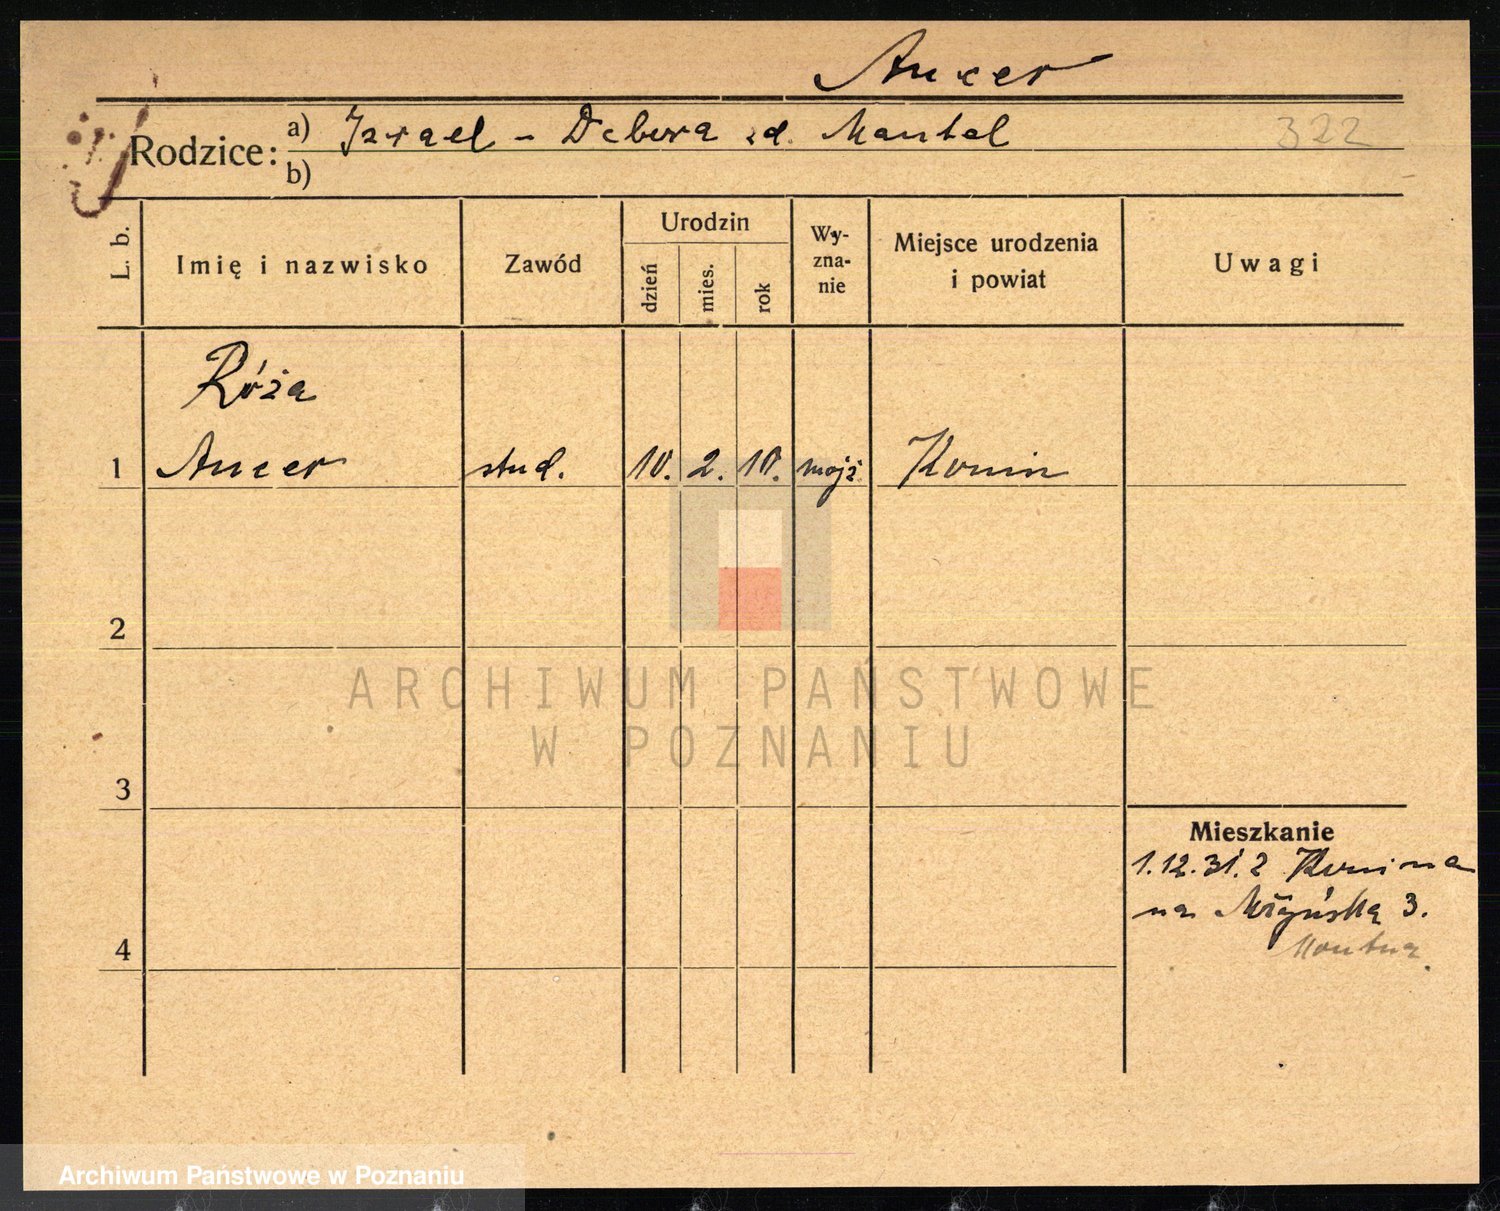 Ancer
Rodzice: a) Izrael - Debora zd. Mantel
322
b)
L. b.
Imię i nazwisko
Zawód
Urodzin
dzień
mies.
rok
Wy-
zna-
nie
Miejsce urodzenia
i powiat
Uwagi
Róża
1 Ancer stud. 10. 2. 10. mojż. Konin
2
ARCHIWUM PAŃSTWOWE
W POZNANIU
3
Mieszkanie
1.12.31. z Konina
na Młyńską 3.
4
Archiwum Państwowe w Poznaniu